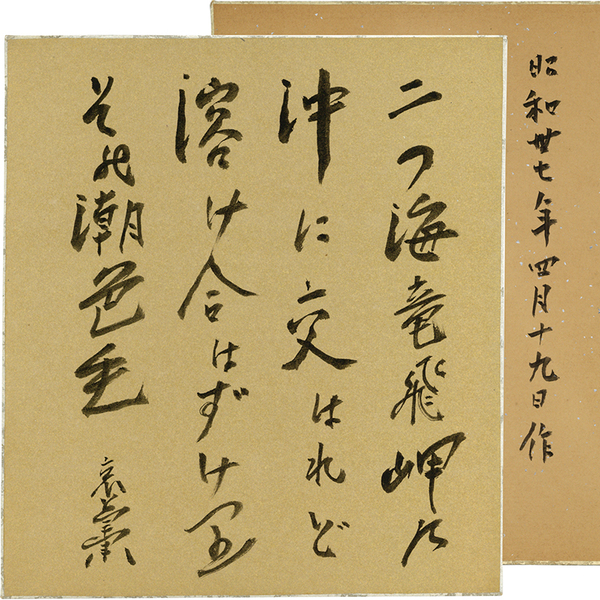 昭和卅七年四月十九日作
二つ海竜飛岬の
沖に交はれど
溶け合はずけり
その潮色も
哀草果